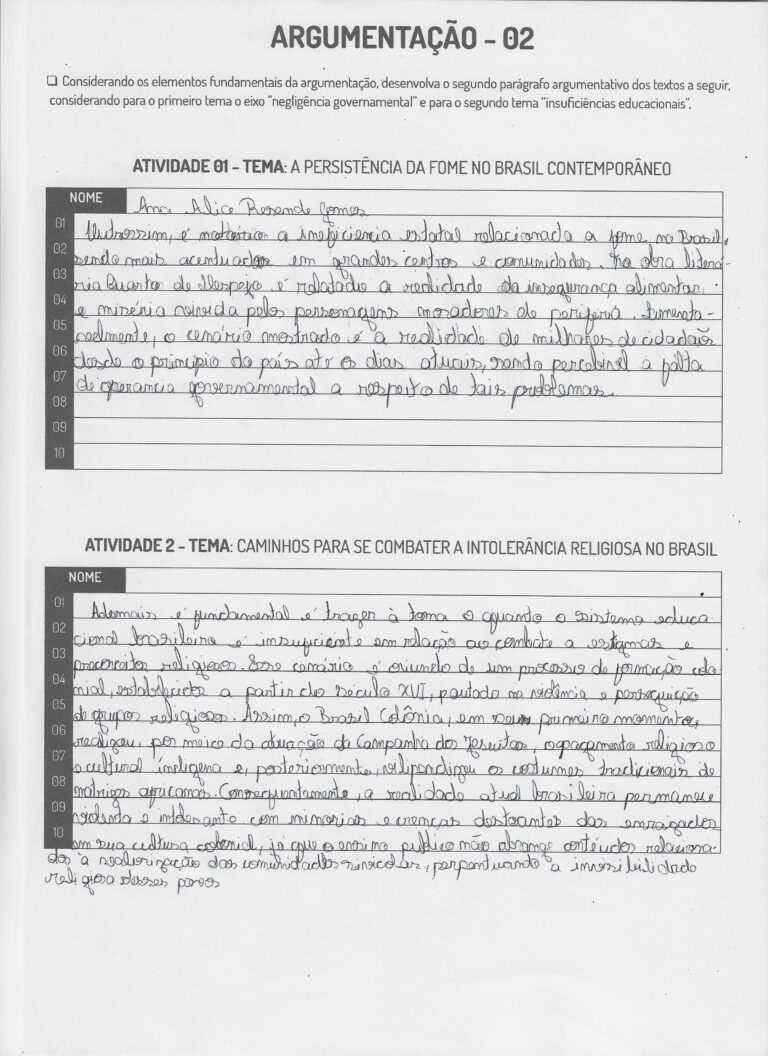 ARGUMENTAÇÃO - 02
❑ Considerando os elementos fundamentais da argumentação, desenvolva o segundo parágrafo argumentativo dos textos a seguir,
considerando para o primeiro tema o eixo "negligência governamental" e para o segundo tema "insuficiências educacionais".
ATIVIDADE 01 - TEMA: A PERSISTÊNCIA DA FOME NO BRASIL CONTEMPORÂNEO
NOME Ana Alice Resende Gomes
01 Outrossim, é notório a ineficiencia estatal relacionada a fome no Brasil,
02 sendo mais acentuados em grandes centros e comunidades. Na obra literá-
03 ria Quarto de Despejo é relatado a realidade da insegurança alimentar
04 e miséria vivida pelos personagens moradores de periferia. Lamenta-
05 velmente, o cenário mostrado é a realidade de milhões de cidadãos
06 desde o princípio do país até os dias atuais, sendo percebivel a falta
07 de operancia governamental a respeito de tais problemas.
08
09
10
ATIVIDADE 2 - TEMA: CAMINHOS PARA SE COMBATER A INTOLERÂNCIA RELIGIOSA NO BRASIL
NOME
01 Ademais é fundamental é trazer à tona o quanto o sistema educa-
02 cional brasileiro é insuficiente em relação ao combate a estigmas e
03 preconceitos religiosos. Esse cenário é oriundo de um processo de formação colo
04 nial, estabelecidos a partir do século XVI, pautado na violência e perseguição
05 de grupos religiosos. Assim, o Brasil Colônia, em seu primeiro momento,
06 realizou, por meio da atuação da Campanha dos Jesuítas, o apagamento religioso
07 e cultural indígena e, posteriormente, vilipendizou os costumes tradicionais de
08 matrizes africanas. Consequentemente, a realidade atual brasileira permanece
09 violenta e intolerante com minorias e crenças destoantes das enraizadas
10 em sua cultura colonial, já que o ensino público não abrange conteúdos relaciona-
dos à valorização das comunidades, perpetuando a invisibilidade
religiosa desses povos